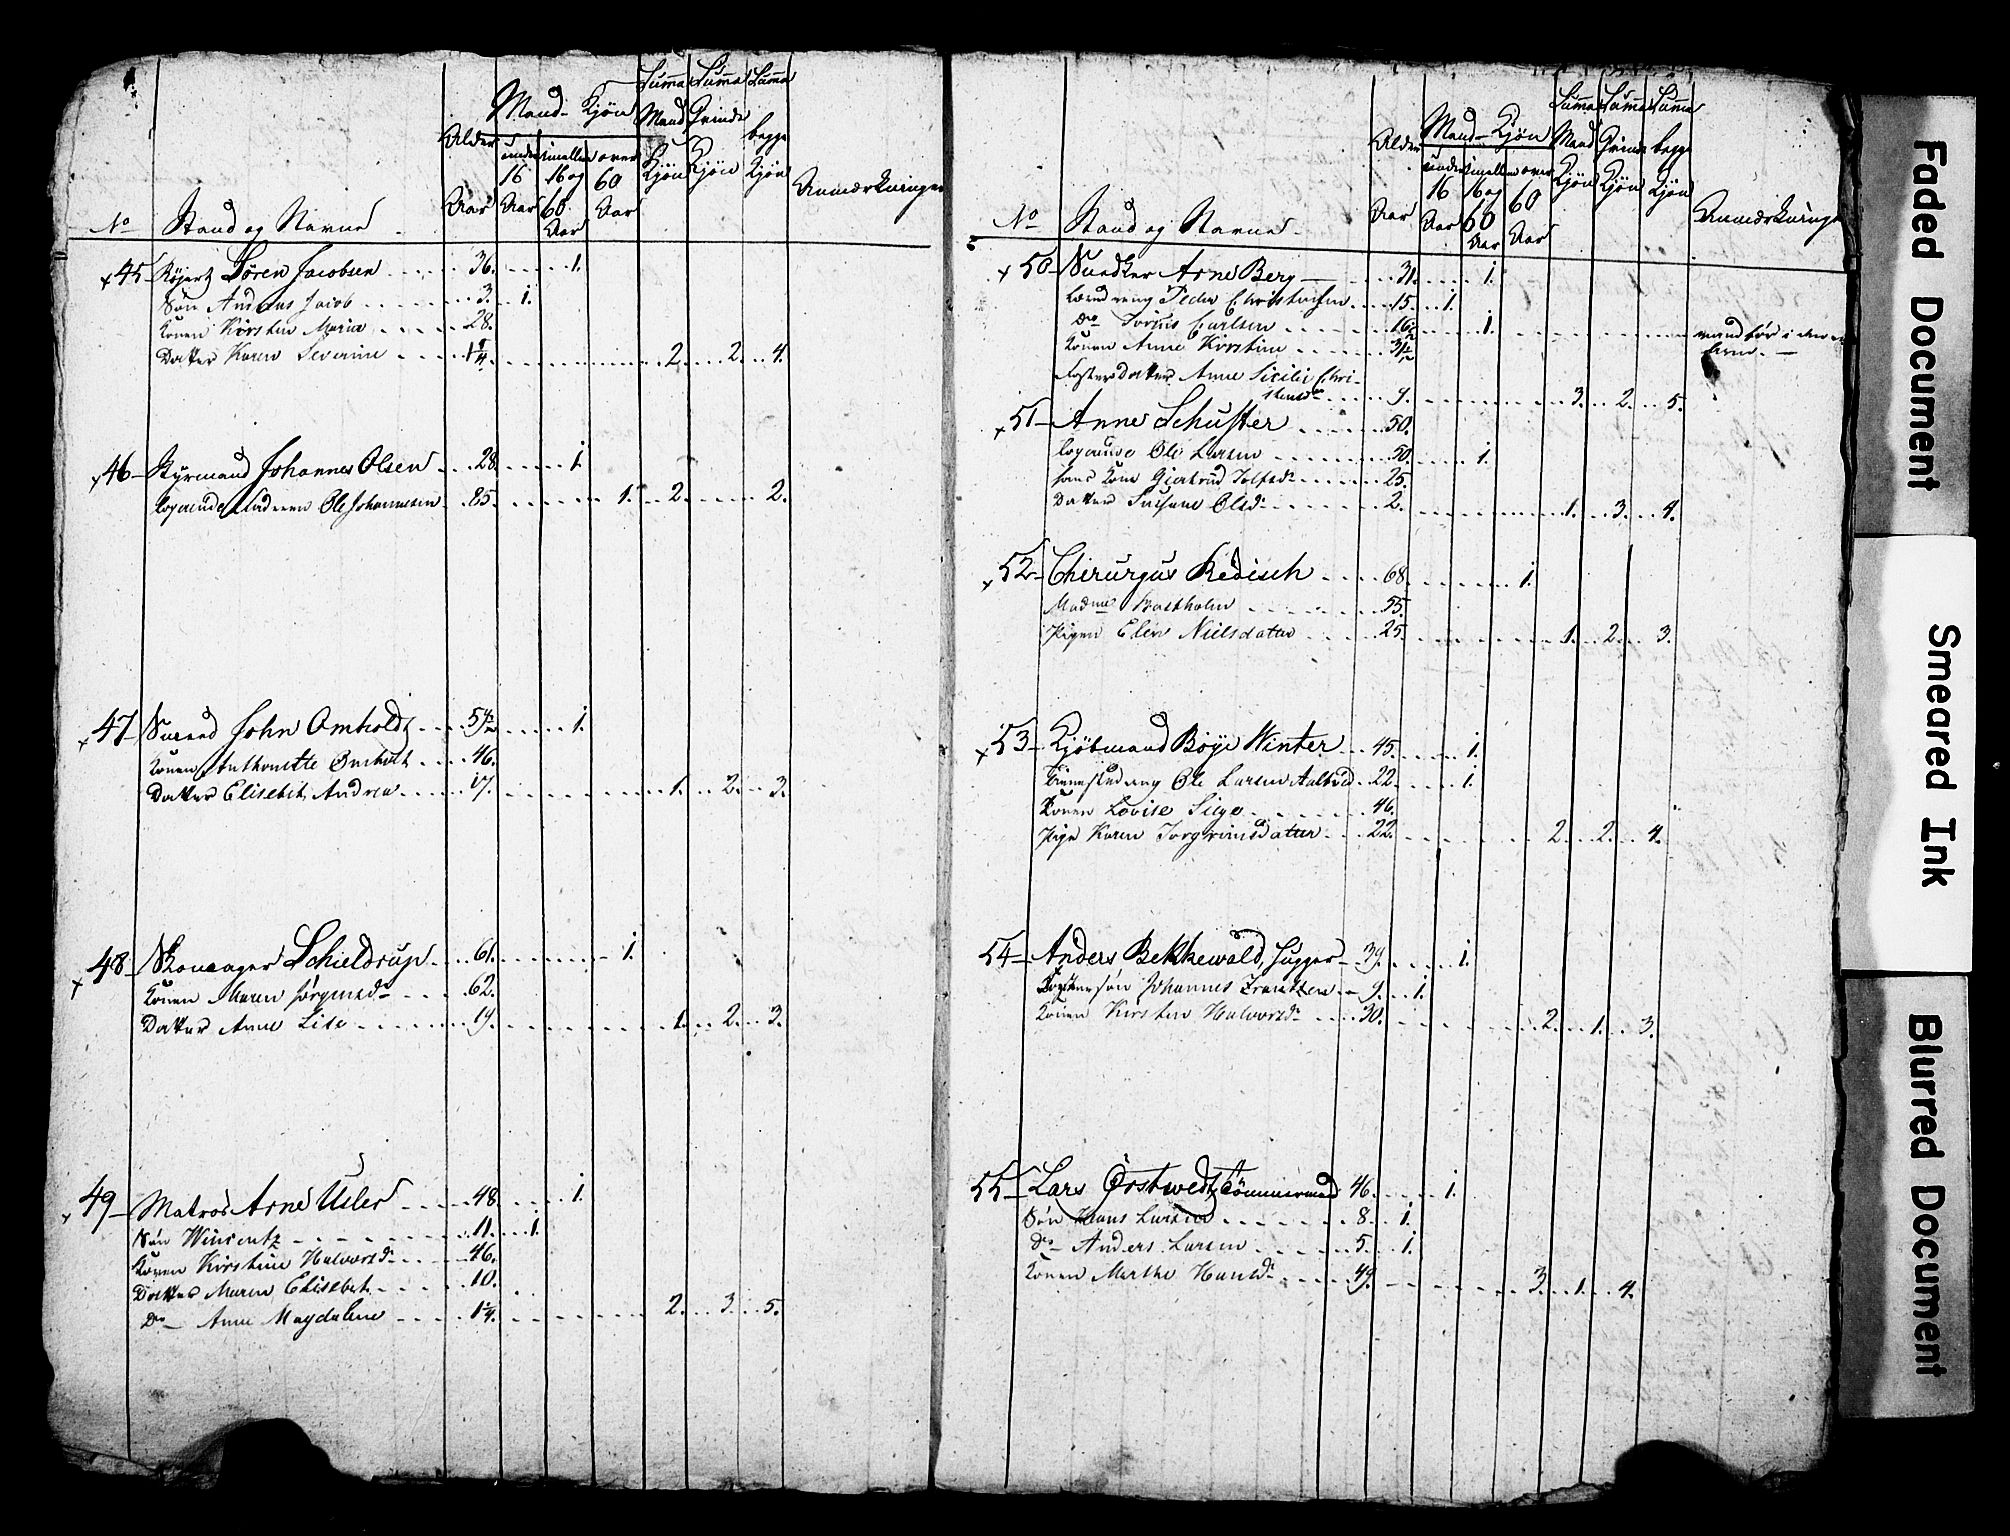 Mand-Kjøn Summa Summa Summa
Alder under imellem over Mand Qvinde begge
16 16 og 60 Kjøn Kjøn Kjøn
No Stand og Navne Aar Aar 60 Aar Aar Anmærkninger
45 Søren Jacobsen 36. 1.
Søn Andreas Jacob 3. 1.
Konen Kirsten Maria 28.
Datter Karen Severine 2. 2. 4.
46 Styrmand Johannes Olsen 28. 1.
Logerende Ole Johannesen 85. 1. 2. 2.
47 John Omholdt 1.
Konen Anthonette Omholt 46.
Datter Elisebet Andrea 17. 1. 2. 3.
48 Skomager Schieldrup 61. 1.
Konen Maren Jørgensdr 62.
Datter Anne Lise 19. 1. 2. 3.
49 Matros Arne Usler 48. 1.
Søn Wincentz 11. 1.
Konen Kirstine Halvorsdr 46.
Datter Maren Elisebet 10.
Do Anne Magdalene 1¼. 2. 3. 5.
Mand-Kjøn Summa Summa Summa
Alder under imellem over Mand Qvinde begge
16 16 og 60 Kjøn Kjøn Kjøn
No Stand og Navne Aar Aar 60 Aar Aar Anmærkninger
50 Snedker Arne Berg 31. 1.
Læredreng Peder Christensen 15. 1.
Do Carlsen 16. 1.
Konen Anne Kirstine
Fosterdatter Anne Sicilie Chri-
stensdr 9. 3. 2. 5.
51 Anne Schuster 50.
Logerende Ole Larsen 30. 1.
hans Kone Giertrud 25.
Datter Susane Olsdr 2. 1. 3. 4.
52 Chirurgus Redisch 68. 1.
Madme Bastholm 55.
Pigen Elen Nielsdatter 25. 1. 2. 3.
53 Kjøbmand Böye Winter 45. 1.
Ole Larsen 22. 1.
Konen Lovise 46.
Pige Karen Torgrimsdatter 22. 2. 2. 4.
54 Anders Bekkewald, 39. 1.
Johannes Frantzen 9. 1.
Konen Kirsten Halvorsdr 30. 2. 1. 3.
55 Lars Örstwedt, Tømmermand 46. 1.
Søn Hans Larsen 8. 1.
Do Anders Larsen 5. 1.
Konen Marthe Hansdr 49. 3. 1. 4.
Faded Document
Smeared Ink
Blurred Document